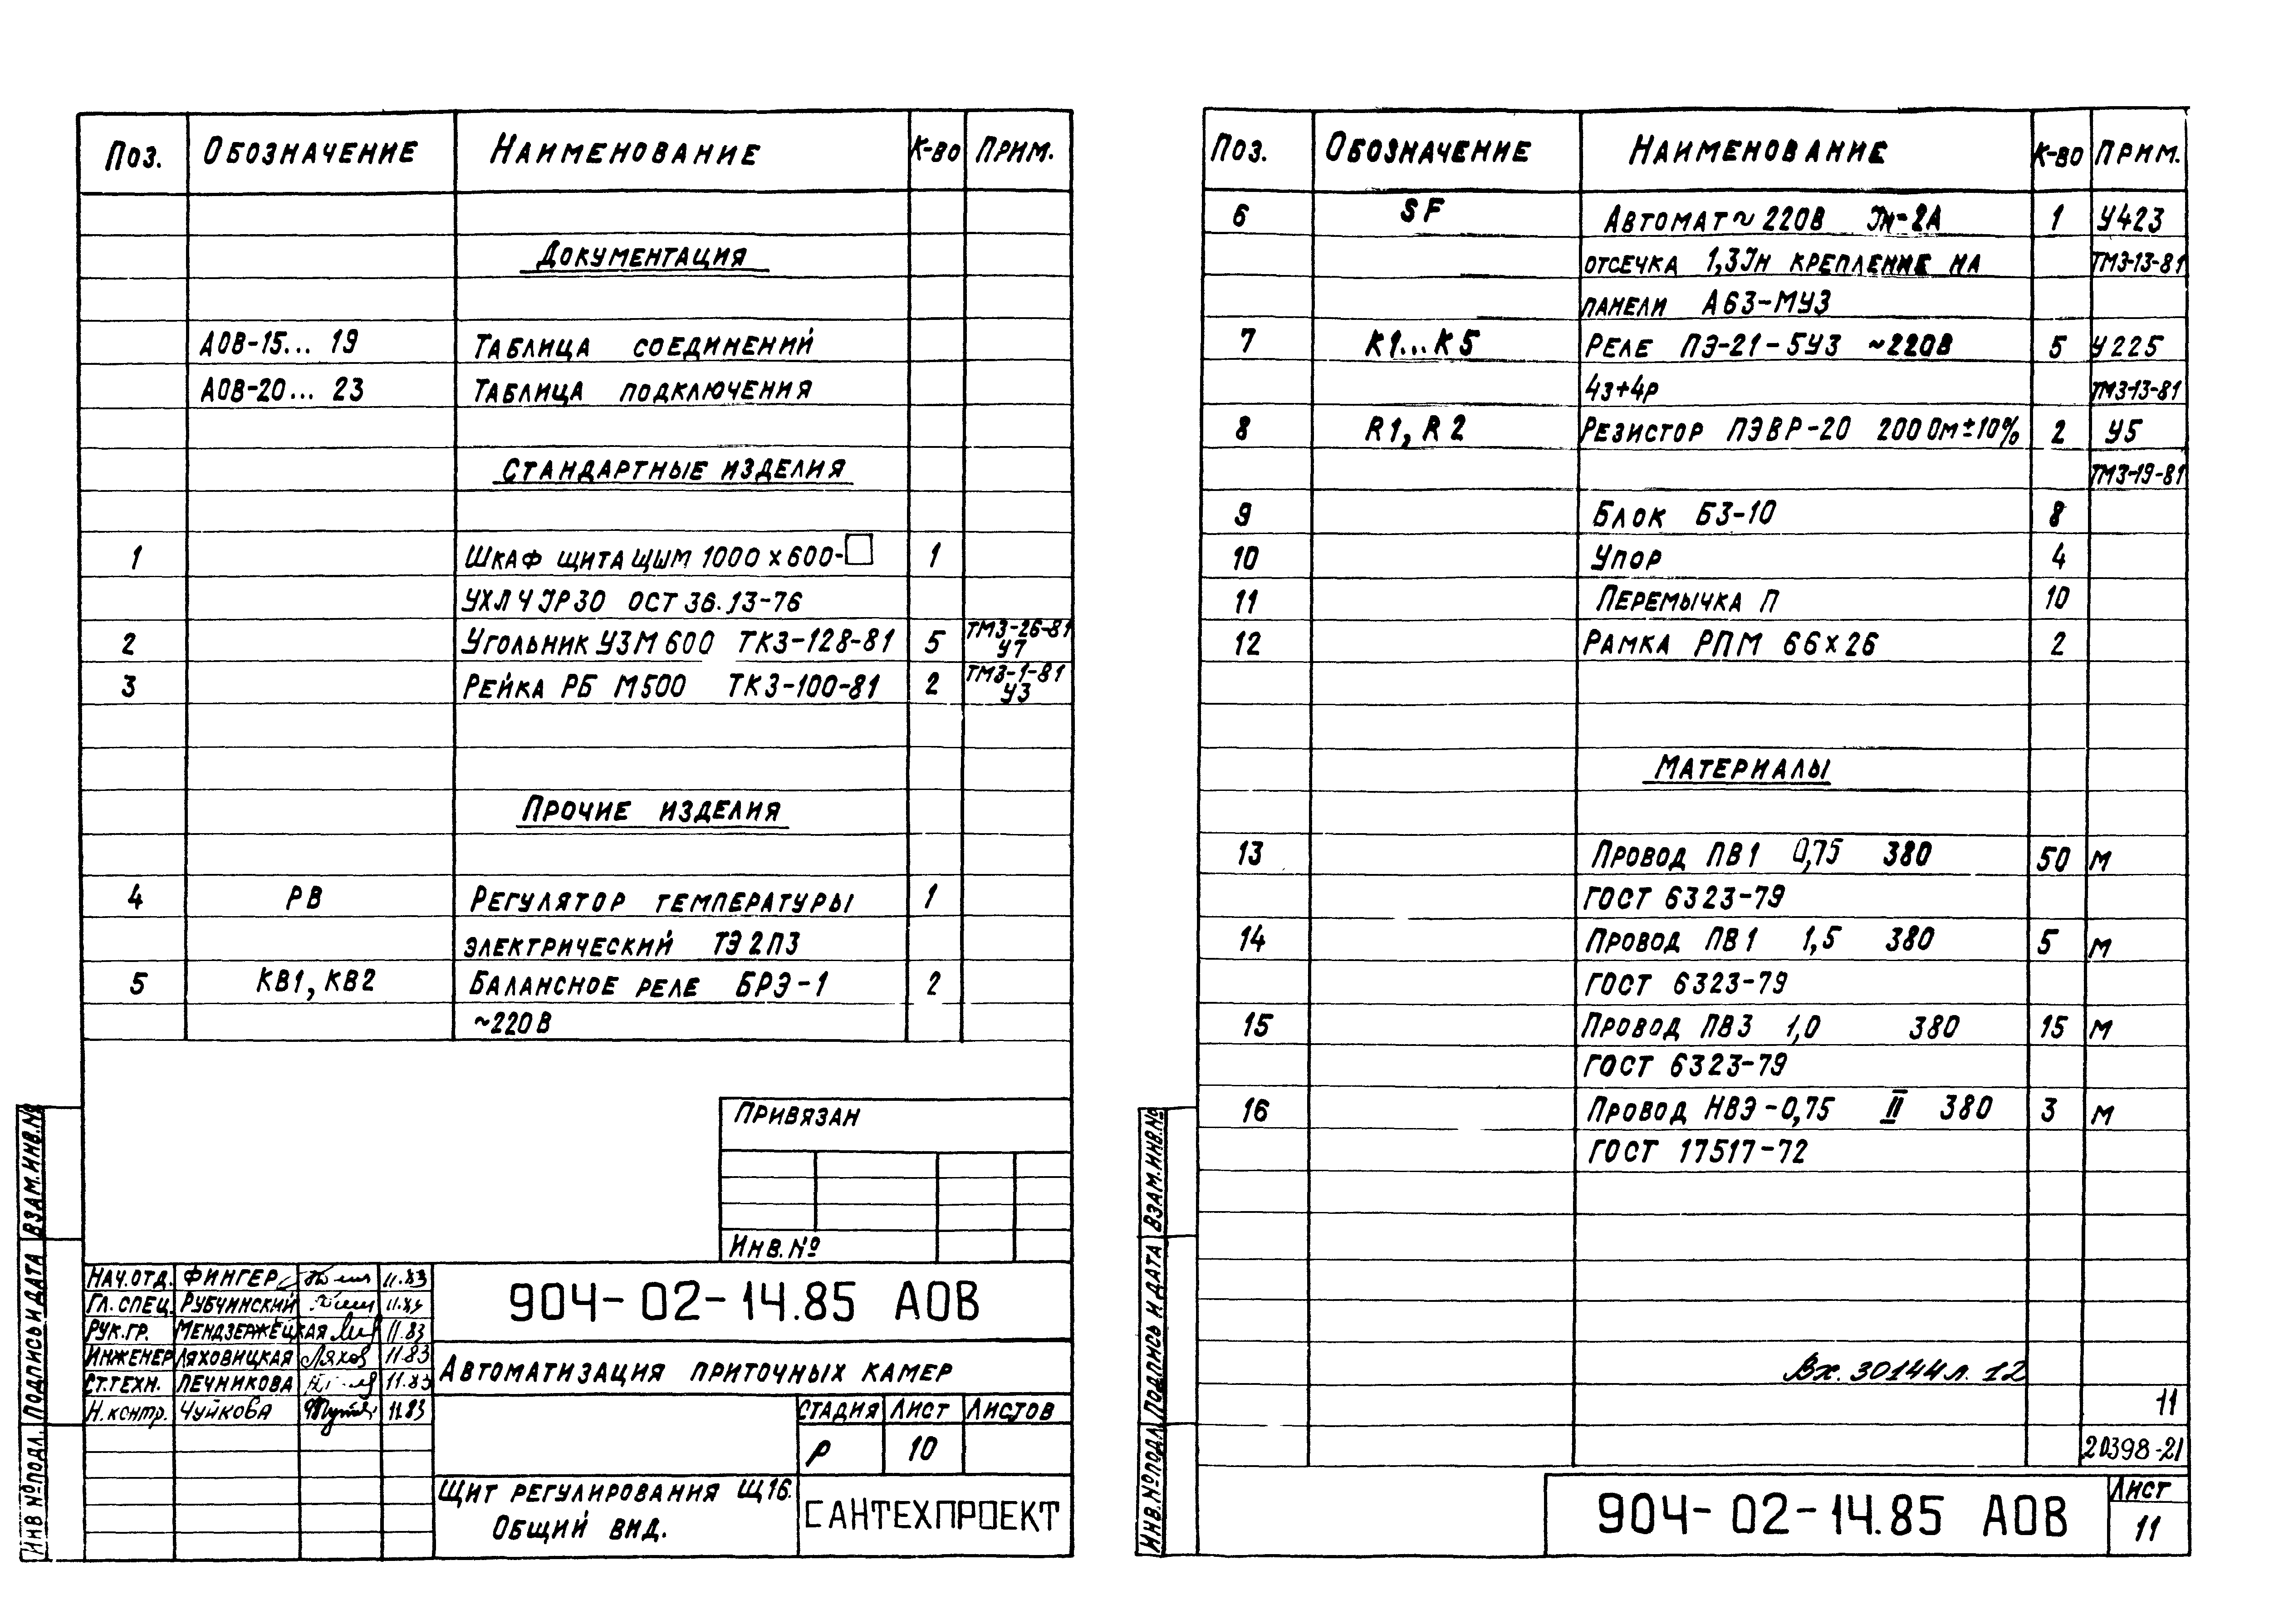 Поз. Обозначение Наименование К-во Прим.
Документация
АОВ-15... 19 Таблица соединений
АОВ-20... 23 Таблица подключения
Стандартные изделия
1 Шкаф щита ЩШМ 1000 х 600-
УХЛ4 IР30 ОСТ 36.13-76 1
2 Угольник УЗМ 600 ТК3-128-81 5 ТМ3-26-81 У7
3 Рейка РБ М500 ТК3-100-81 2 ТМ3-1-81 У3
Прочие изделия
4 РВ Регулятор температуры 1
электрический ТЭ2П3
5 КВ1, КВ2 Балансное реле БРЭ-1 2
~220В
Привязан
Инв.№
Нач.отд. Фингер 11.83
Гл. спец. Рубчинский
Рук.гр. Мендзержецкая 11.83
Инженер Ляховицкая 11.83
Ст.техн. Печникова 11.83
Н. контр. Чуйкова 11.83
904-02-14.85 АОВ
Автоматизация приточных камер
Стадия Лист Листов
Р 10
Щит регулирования Щ16.
Общий вид.
САНТЕХПРОЕКТ
Инв №подл. Подпись и дата Взам.инв.№
Поз. Обозначение Наименование К-во Прим.
6 SF Автомат ~ 220В Iн-2А 1 У423
отсечка 1,3Iн крепление на ТМ3-13-81
панели А63-МУ3
7 К1...К5 Реле ПЭ-21-5У3 ~220В 5 У225
4з+4р ТМ3-13-81
8 R1, R2 Резистор ПЭВР-20 200 Ом±10% 2 У5
ТМ3-19-81
9 Блок БЗ-10 8
10 Упор 4
11 Перемычка П 10
12 Рамка РПМ 66х26 2
Материалы
13 Провод ПВ1 0,75 380 50 м
ГОСТ 6323-79
14 Провод ПВ1 1,5 380 5 м
ГОСТ 6323-79
15 Провод ПВ3 1,0 380 15 м
ГОСТ 6323-79
16 Провод НВЭ-0,75 II 380 3 м
ГОСТ 17517-72
Вх. 30144 л. 12
11
20398-21
904-02-14.85 АОВ
Лист
11
Инв.№подл. Подпись и дата Взам.инв.№